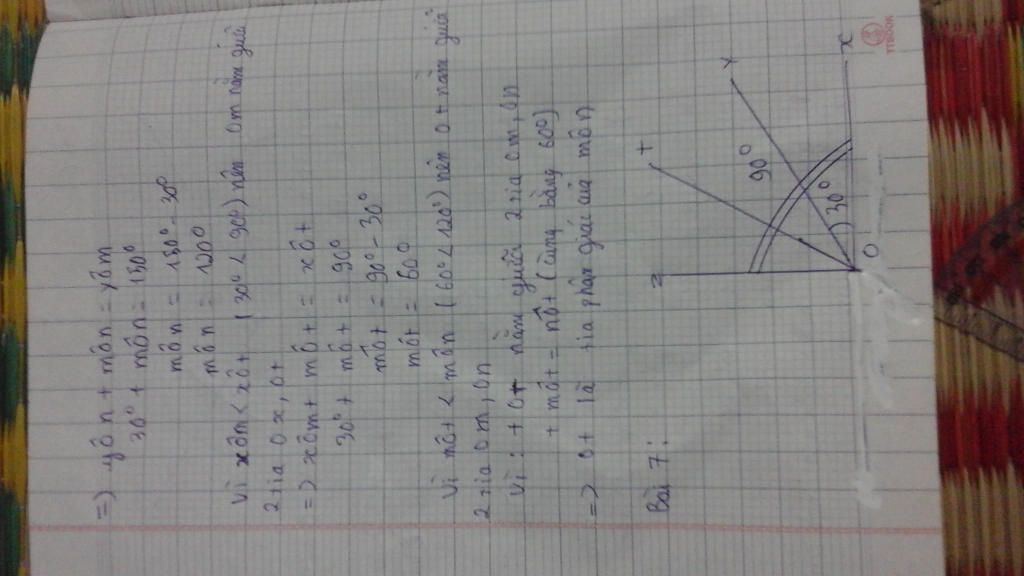 =) yôn + môn = yôm
30° + môn = 150°
môn = 150° - 30°
môn = 120°
Vì xôm < xôt (30° < 90°) nên Om nằm giữa
2 tia Ox, Ot
=) xôm + môt = xôt
30° + môt = 90°
môt = 90° - 30°
môt = 60°
Vì môt < môn (60° < 120°) nên Ot nằm giữa
2 tia Om, On
Vì : + Ot nằm giữa 2 tia Om, On
+ môt = nôt (cùng bằng 60°)
=) Ot là tia phân giác của môn
Bài 7:
z
t
y
x
90°
30°
O
TTBOOK